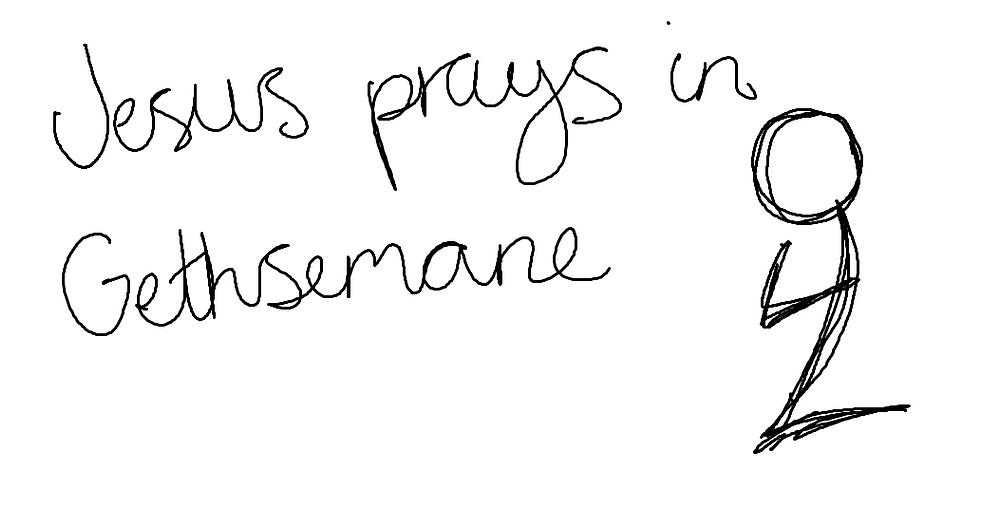 Jesus prays in
Gethsemane